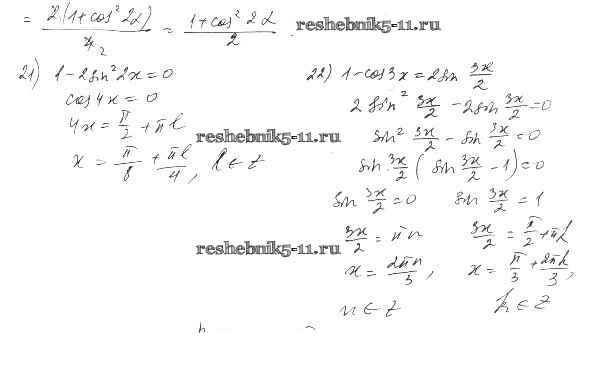 = 2(1+cos² 2α)/4 2 = (1+cos² 2α)/2 .
reshebnik5-11.ru
21) 1-2sin² 2x=0
cos4x=0
4x = π/2 + πl
x = π/8 + πl/4, l ∈ z
reshebnik5-11.ru
22) 1-cos3x=2sin 3x/2
2 sin² 3x/2 - 2sin 3x/2 = 0
sin² 3x/2 - sin 3x/2 = 0
sin 3x/2 ( sin 3x/2 - 1)=0
sin 3x/2 = 0 sin 3x/2 = 1
3x/2 = πn 3x/2 = π/2 + πk
x = 2πn/3, x = π/3 + 2πk/3,
n ∈ z k ∈ z
reshebnik5-11.ru